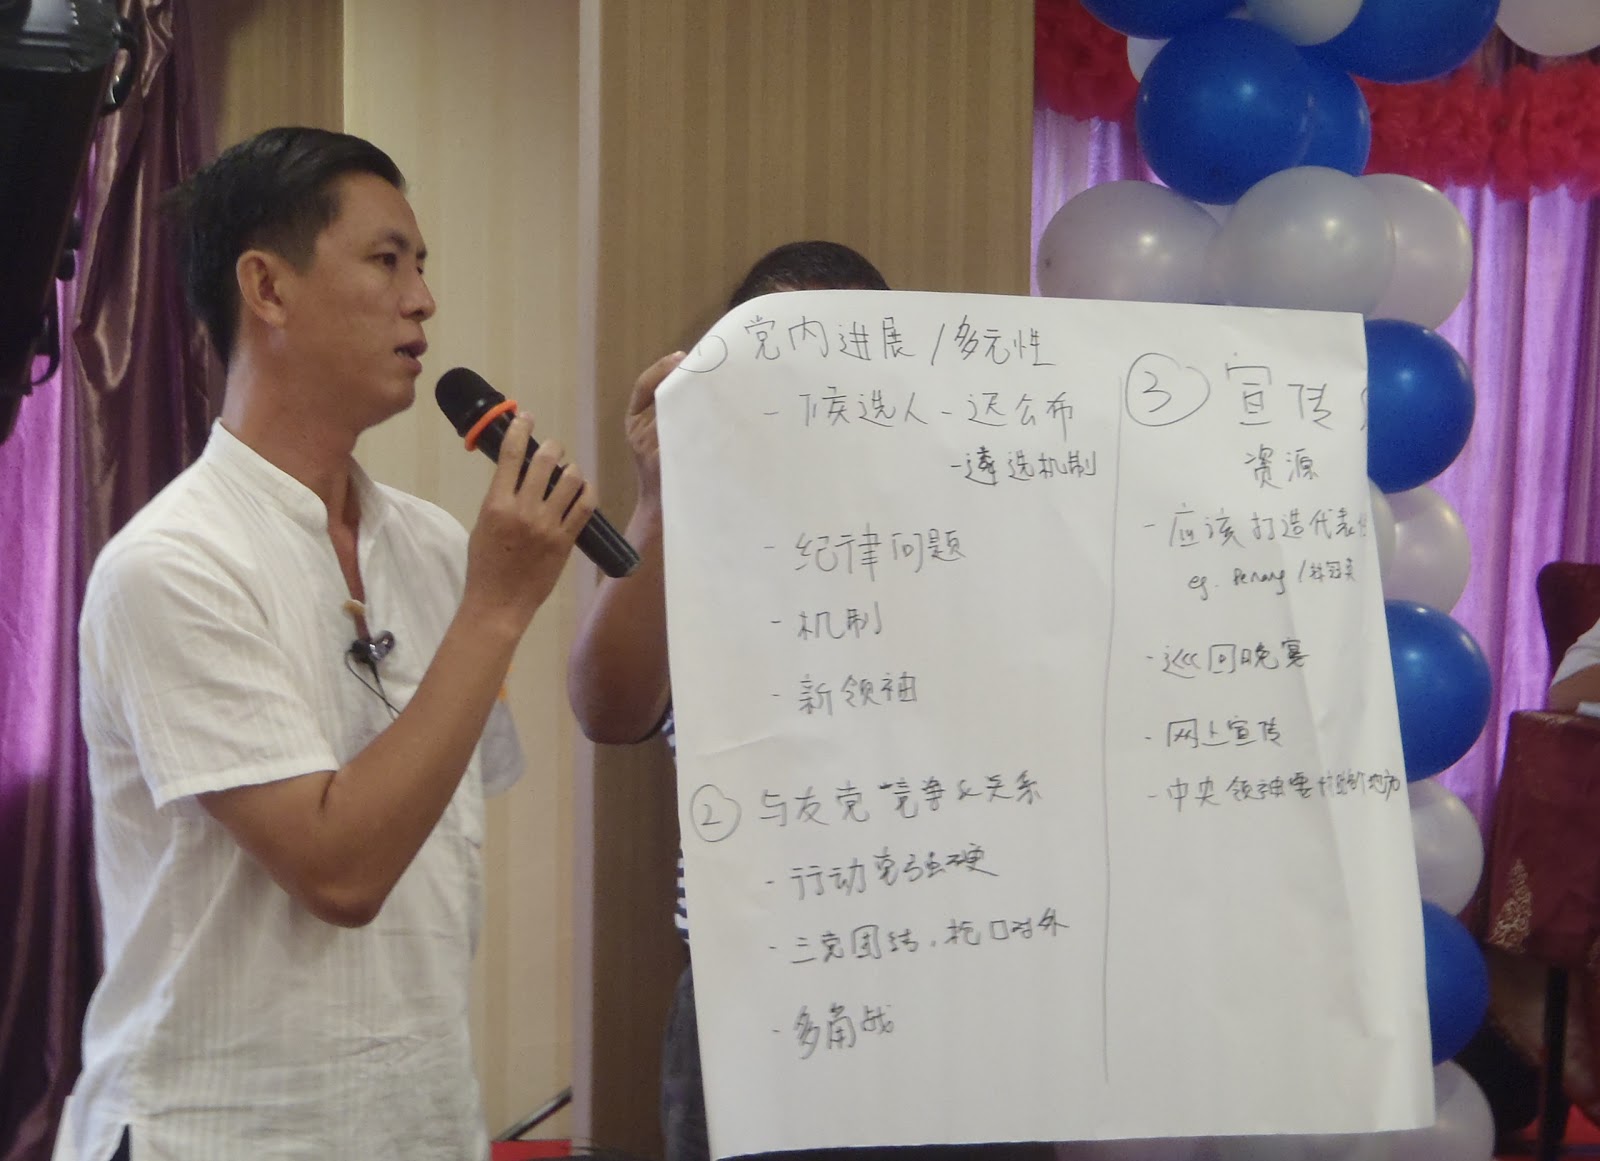 ① 党内进展 / 多元性
- 候选人 - 迟公布
- 遴选机制
- 纪律问题
- 机制
- 新领袖
② 与友党竞争及关系
- 行动党强硬
- 三党团结，枪口对外
- 多角战
③ 宣传
资源
- 应该打造代表
eg. Penang / 林冠英
- 巡回晚宴
- 网上宣传
- 中央领袖要